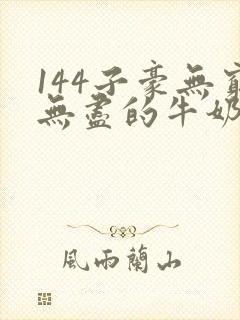 144子豪無
無盡的牛奶
風雨蘭山